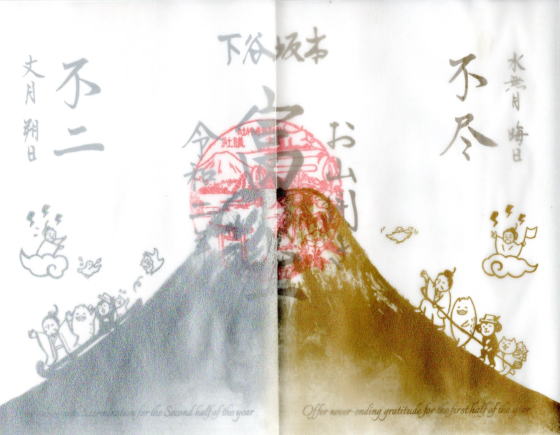 下谷坂本
水無月 晦日
不尽
お山開
富
令和
不二
文月 朔日
determination for the Second half of the year
Offer never-ending gratitude for the first half of the year